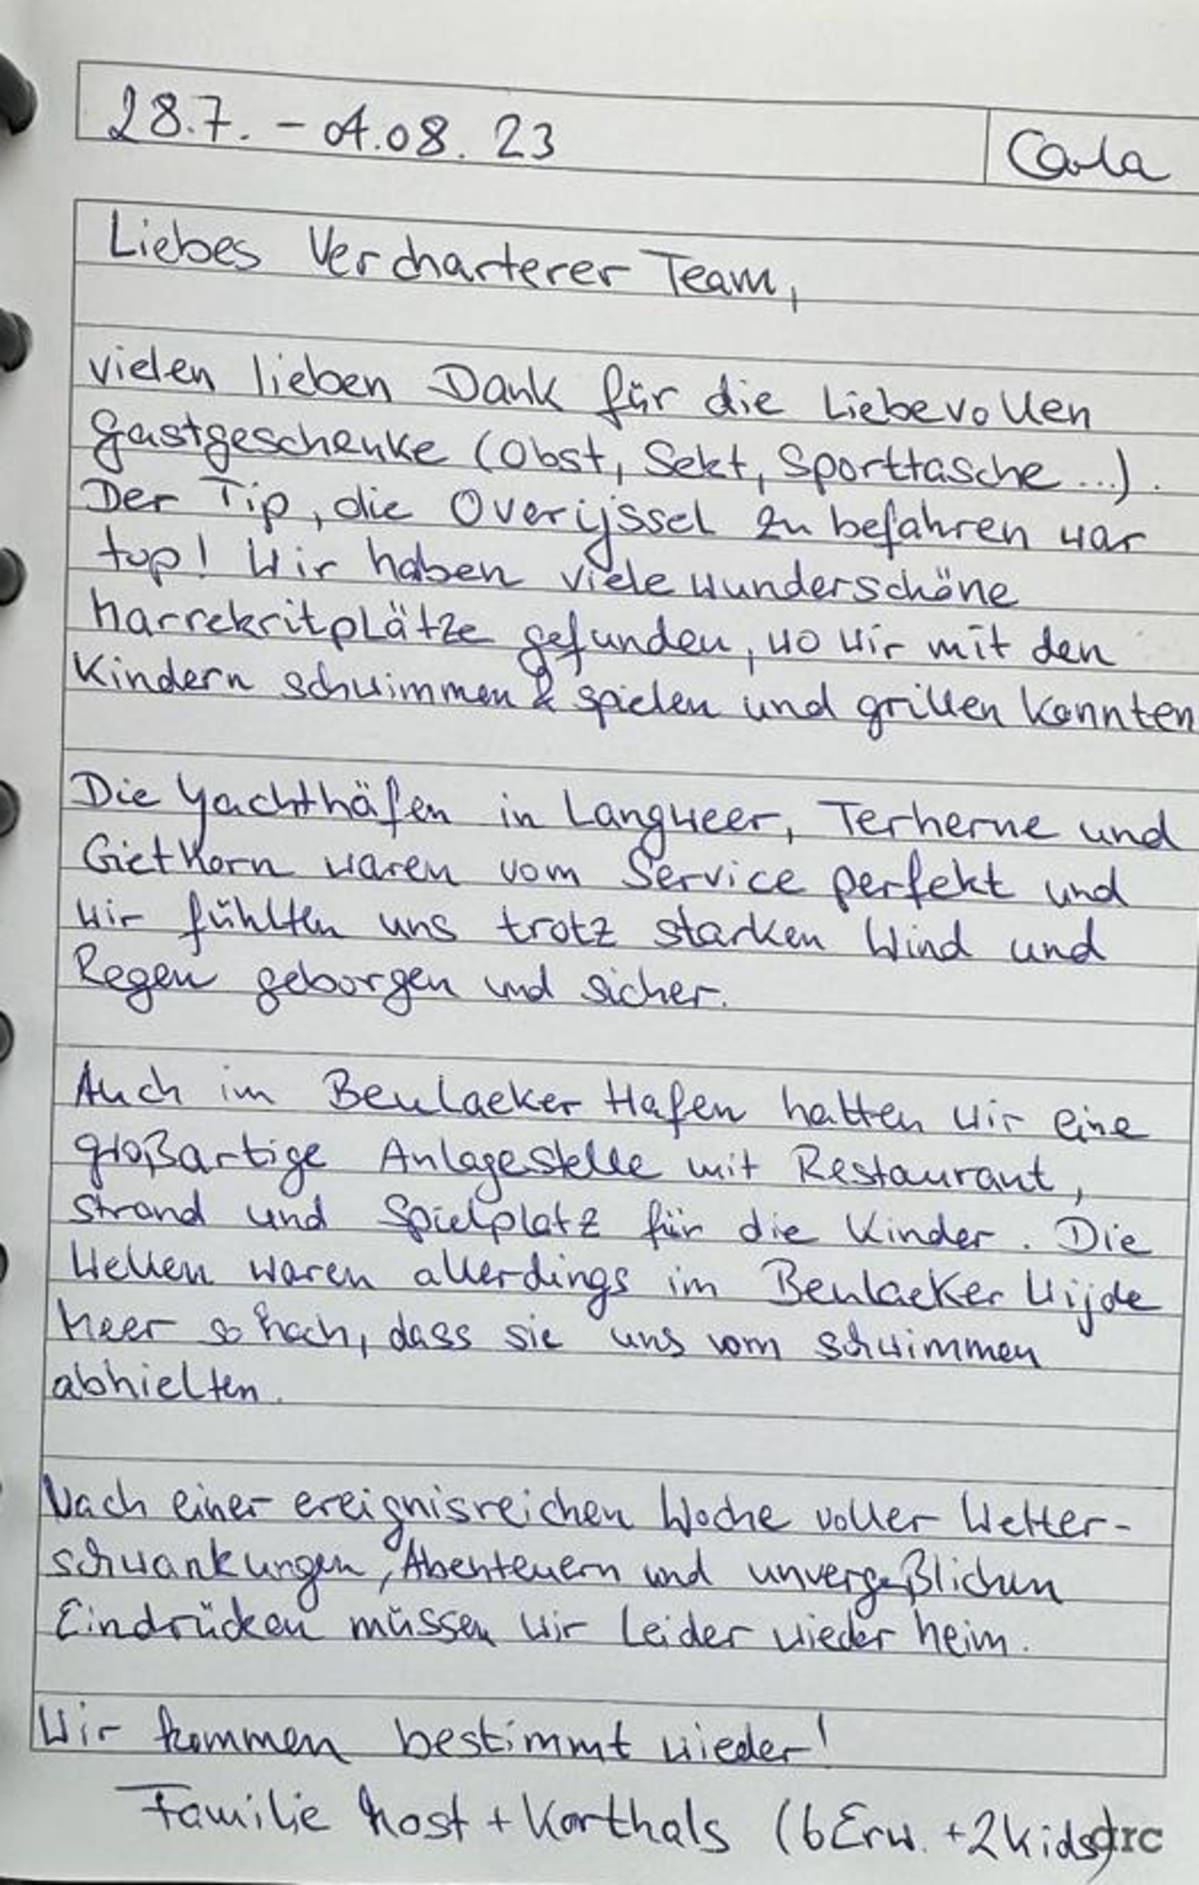 28.7. - 04.08.23
Carla
Liebes Vercharterer Team,
vielen lieben Dank für die Liebevollen
Gastgeschenke (Obst, Sekt, Sporttasche...).
Der Tip, die Overijssel zu befahren war
top! Wir haben viele wunderschöne
Marrekritplätze gefunden, wo wir mit den
Kindern schwimmen & spielen und grillen konnten
Die Yachthäfen in Langweer, Terherne und
Giethorn waren vom Service perfekt und
wir fühlten uns trotz starken Wind und
Regen geborgen und sicher.
Auch im Beulaeker Hafen hatten wir eine
großartige Anlagestelle mit Restaurant,
Strand und Spielplatz für die Kinder. Die
Wellen waren allerdings im Beulaeker Wijde
Meer so hoch, dass sie uns vom schwimmen
abhielten.
Nach einer ereignisreichen Woche voller Wetter-
schwankungen, Abenteuern und unvergeßlichen
Eindrücken müssen wir leider wieder heim.
Wir kommen bestimmt wieder!
Familie + Korthals (6 Erw. + 2 Kids)